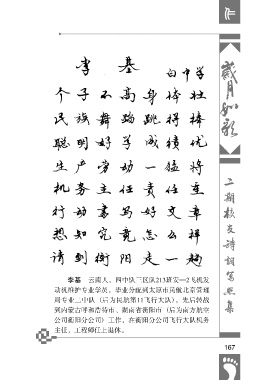 李 基
白中学
个子不高身体壮
民族舞蹈跳得棒
聪明好学成绩优
生产劳动一猛将
机务主任责任重
行动书写好文章
想知究竟怎么样
请到衡阳走一趟
李基 云南人，四中队二区队213班安—2飞机发
动机维护专业学员。毕业分配到太原市民航北京管理
局专业二中队（后为民航第11飞行大队），先后转战
到内蒙古呼和浩特市、湖南省衡阳市（后为南方航空
公司衡阳分公司）工作，在衡阳分公司飞行大队机务
主任、工程师任上退休。
岁月如歌
二期校友诗词写照集
167